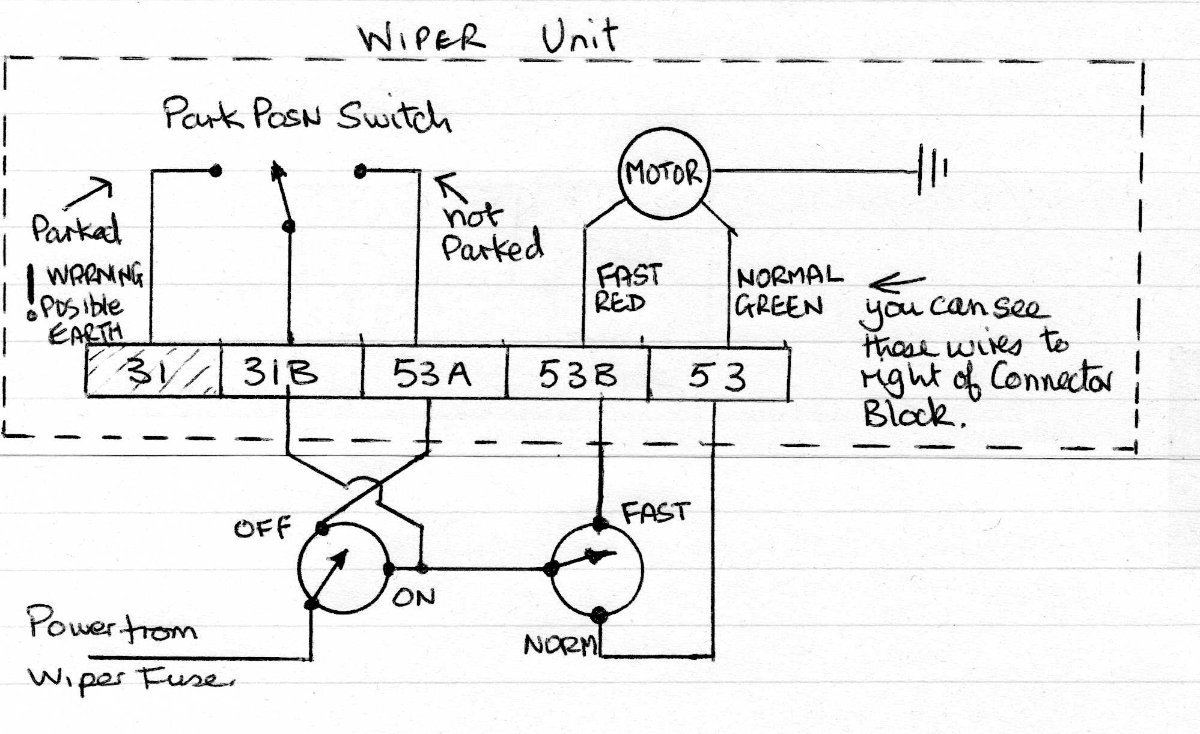 WIPER Unit
Park POSN Switch
MOTOR
Parked
not
Parked
! WARNING
Posible
EARTH
FAST
RED
NORMAL
GREEN
you can see
these wires to
right of Connector
Block.
31
31B
53A
53B
53
OFF
ON
FAST
NORM
Power from
Wiper Fuse.